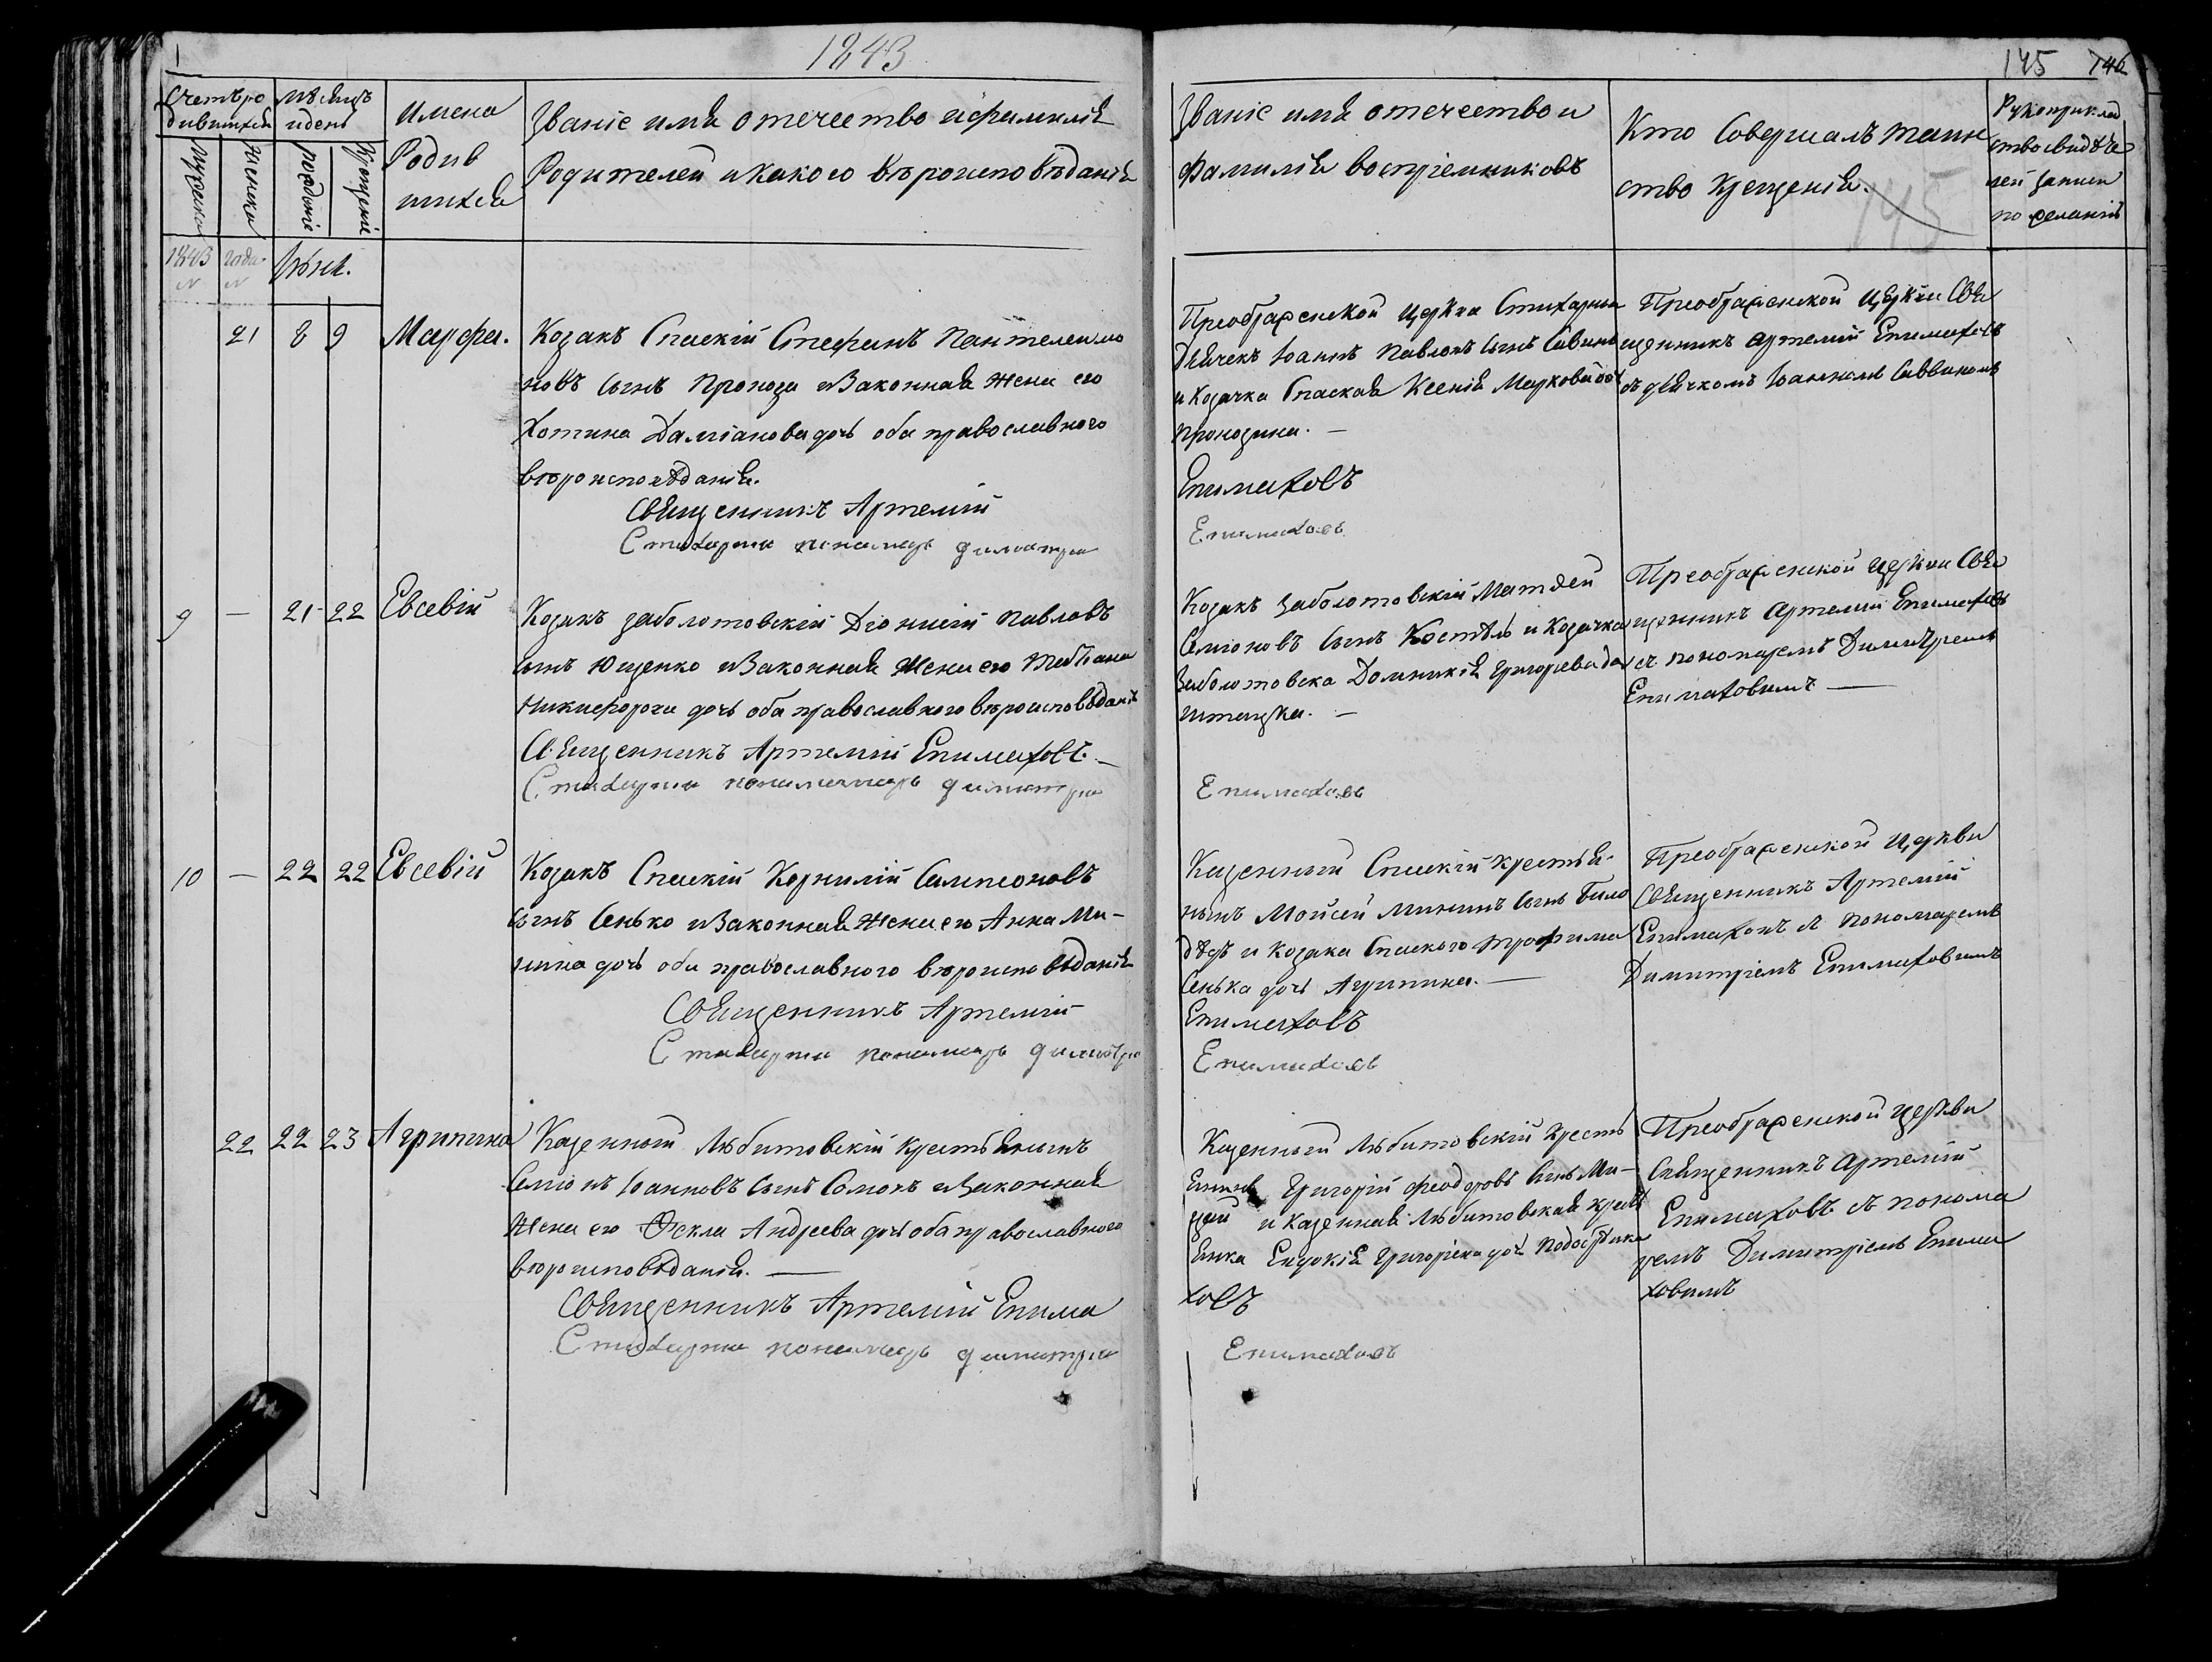 1843
145 146
Счетъ ро
дившихся
Мѣсяцъ
и день
Имена
Родив
шихся
Званіе имя отечество и фамилія
Родителей и какого вѣроисповѣданія
Званіе имя отечество и
Фамилія воспріемниковъ
Кто Совершалъ таин
ство Крещенія.
Рукоприклад
ство свидѣте
лей записи
по желанію
Мужеска
Женска
рожденіе
Крещеніе
145
1843 года
№ №
Іюнь.
21 8 9 Марфа.
Козакъ Спаскій Стефанъ Пантелеимо
новъ сынъ Проноза и Законная жена его
Хотина Даміанова дочь оба православного
вѣроисповѣданія.
Священникъ Артемій
Стихарны пономарь димитри
Преображенской Церкви Стихарны
Дьячекъ Іоаннъ Павловъ сынъ Савинъ
и Козачка Спаская Ксенія Маркова дочь
Пронозина. —
Епимаховъ
Епимаховъ
Преображенской Церкви Свя
щенникъ Артемій Епимаховъ
съ дьячкомъ Іоанномъ Саввиномъ
9 — 21 22 Евсевій
Козакъ заболотовскій Діонисій Павловъ
сынъ Ющенко и Законная Жена его Татіана
Никифорова дочь оба православного вѣроисповѣданія
Священникъ Артемій Епимаховъ. —
Стихарны пономарь димитри
Козакъ Заболотовскій Матѳей
Семіоновъ сынъ Костѣль и Козачка
Заболотовска Домникія Григорева до
Епимаховъ
Преображенской Церкви Свя
щенникъ Артемій Епимаховъ
съ пономаремъ Димитріемъ
Епимаховимъ —
10 — 22 22 Евсевій
Козакъ Спаскій Корнилій Сампсоновъ
сынъ Сенько и Законная Жена его Анна Ми-
нина дочь оба православного вѣроисповѣданія
Священникъ Артемій
Стихарны пономарь димитри
Казенный Спаскій крестья-
нинъ Мойсей Мининъ сынъ Било
дѣдъ и козака Спаского Трофима
Сенька дочь Агрипина. —
Епимаховъ
Епимаховъ
Преображенской Церкви
Священникъ Артемій
Епимаховъ съ пономаремъ
Димитріемъ Епимаховимъ
22 22 23 Агрипина
Казенный Любитовскій крестьянинъ
Семіонъ Іоанновъ сынъ Сомокъ и Законная
Жена его Ѳекла Андреева дочь оба православного
вѣроисповѣданія. —
Священникъ Артемій Епима
Стихарны пономарь димитри
Казенный Любитовскій кресть
янинъ Григорій Феодоровъ сынъ Ми-
и казенная Любитовская кресть
янка Евдокія Григоріева дочь
ховъ
Епимаховъ
Преображенской Церкви
Священникъ Артемій
Епимаховъ съ понома
ремъ Димитріемъ Епима
ховимъ